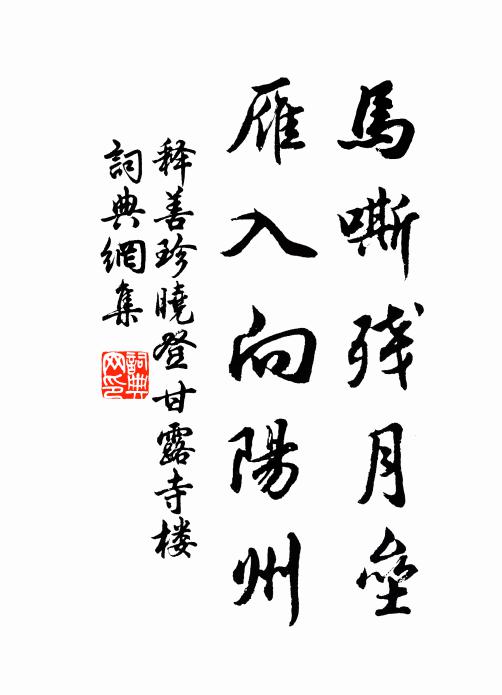 馬嘶残月壘
雁入向陽州
释善珍曉登甘露寺楼
詞典網集
詞典网印